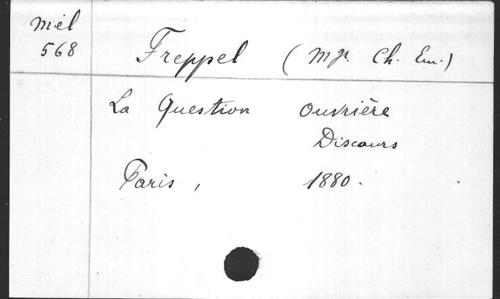 Mél
568
Freppel (Mgr. Ch. Em.)
La Question Ouvrière
Discours
Paris, 1880.